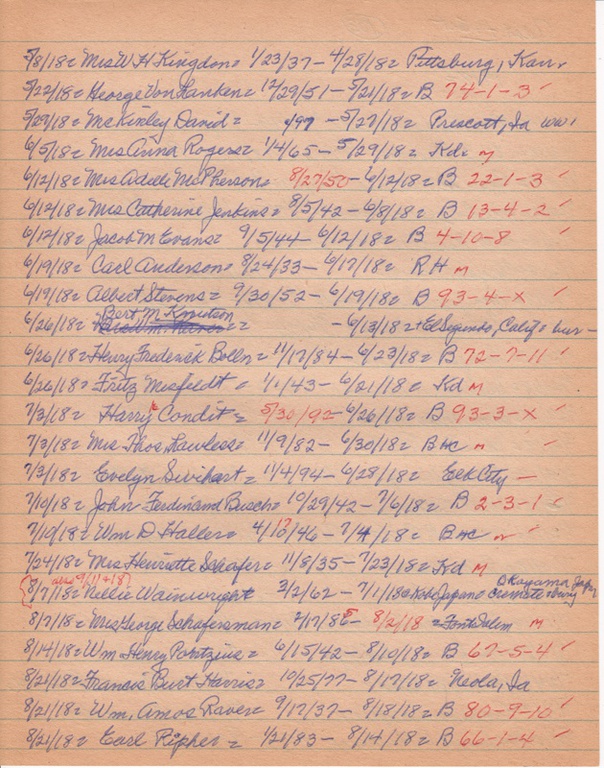 5/8/18= Mrs W H Kingdon= 1/23/37 - 4/28/18= Pittsburg, Kan.
5/22/18= George Von Lanken= 12/29/51 - 5/21/18= B 74-1-3 ✓
5/29/18= McKinley David= /97 - 5/27/18= Prescott, Ia WW1
6/5/18= Mrs Anna Rogers= 1/4/65 - 5/29/18= Kd= m
6/12/18= Mrs Adele McPherson= 8/27/50 - 6/12/18= B 22-1-3 ✓
6/12/18= Mrs Catherine Jenkins= 8/5/42 - 6/8/18= B 13-4-2 ✓
6/12/18= Jacob M Evans= 9/5/44 - 6/12/18= B 4-10-8 ✓
6/19/18= Carl Anderson= 8/24/33 - 6/17/18= R H m
6/19/18= Albert Stevens= 9/30/52 - 6/19/18= B 93-4-X ✓
Bert M Knutson
6/26/18= = - 6/13/18= +El Segundo, Calif= bur -
6/26/18= Henry Frederick Bolln= 11/17/84 - 6/23/18= B 72-7-11 ✓
6/26/18= Fritz Misfeldt = 1/1/43 - 6/21/18= Kd m
7/3/18= Harry Condit= 5/30/92 - 6/26/18= B 93-3-X ✓
7/3/18= Mrs Thos, Lawless= 11/9/82 - 6/30/18= B HC m ✓
7/3/18= Evelyn Swihart= 11/4/94 - 6/28/18= Elk City -
7/10/18= John Ferdinand Busch= 10/29/42 - 7/6/18= B 2-3-1 ✓
7/19/18= Wm D Haller= 4/10/46 - 7/4/18= B HC m ✓
7/24/18= Mrs Henriette Schafer= 11/8/35 - 7/23/18= Kd m
also 9/11+18 Okayama Japn
8/7/18= Nellie Wainwright 3/2/62 - 7/1/18= Kobe Japan= cremate
8/7/18= Mrs George Schafersman= 2/17/85 - 8/2/18 = Fontanelle m
8/14/18= Wm Henry = 6/15/42 - 8/10/18= B 67-5-4 ✓
8/21/18= Francis Burt Harris= 10/25/77 - 8/17/18= Neola, Ia
8/21/18= Wm, Amos Raver= 9/17/37 - 8/18/18= B 80-9-10 ✓
8/21/18= Earl Ripher= 1/21/83 - 8/14/18= B 66-1-4 ✓